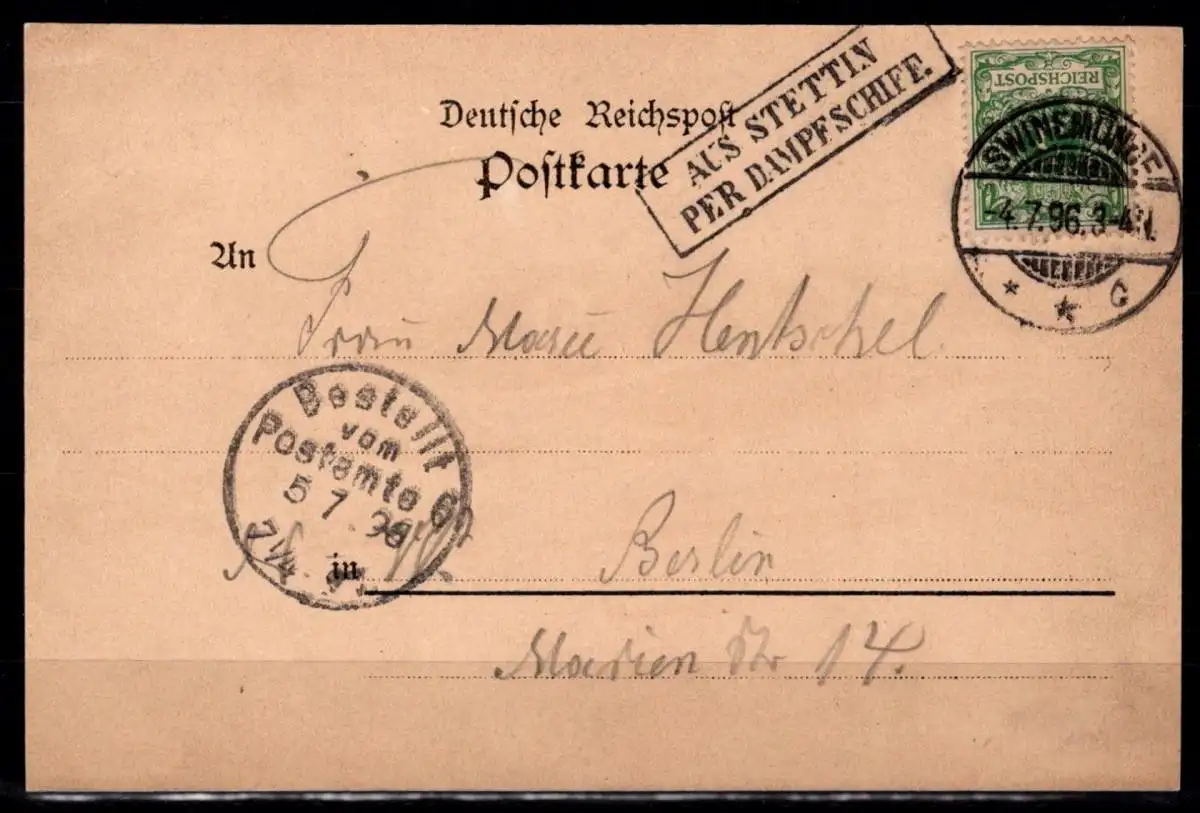 Deutsche Reichspost
Postkarte
AUS STETTIN
PER DAMPFSCHIFF.
REICHSPOST
SWINEMÜNDE
-4.7.96.3-4N.
* * C
An
Frau Marie Hentschel.
Bestellt
vom
Postamte 6
5 7 96
7¼
in
Berlin
Marien Str 14.